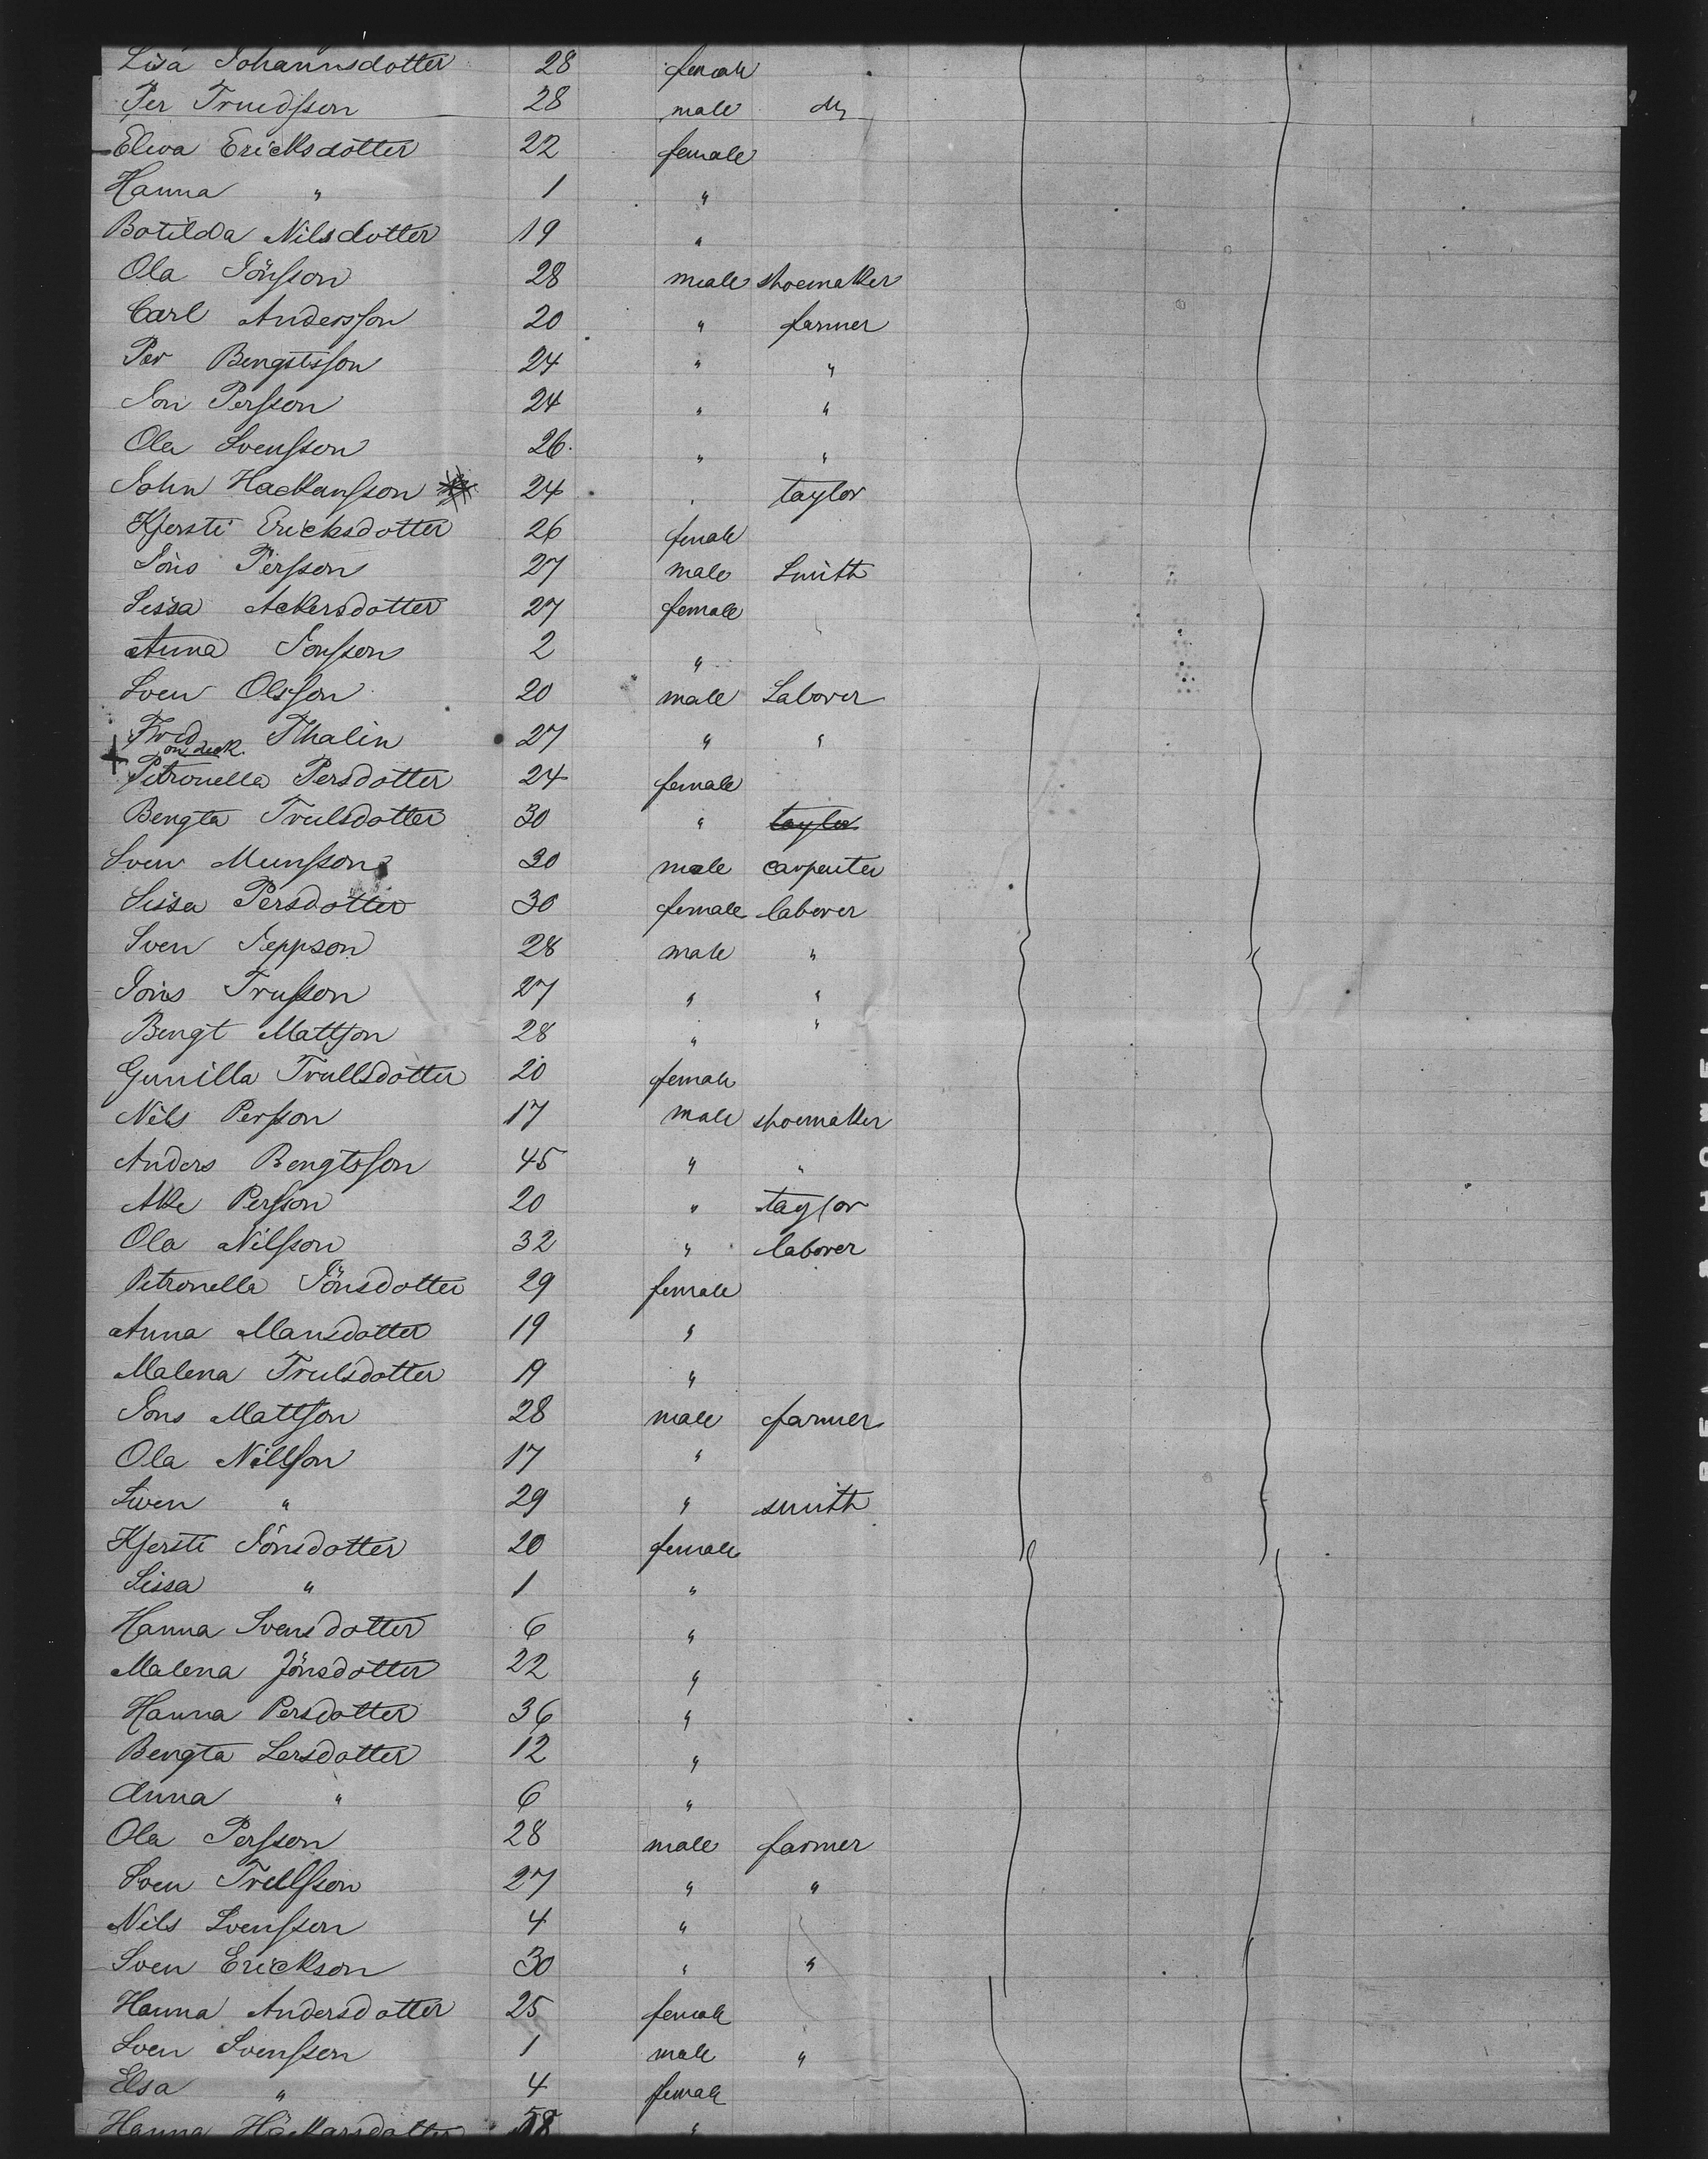 Lisa Johannsdotter 28 female
Per Truedsson 28 male do
Elwa Ericksdotter 22 female
Hanna " 1 "
Botilda Nilsdotter 19 "
Ola Jönsson 28 male shoemaker
Carl Andersson 20 " farmer
Per Bengtsson 24 " "
Jon Persson 24 " "
Ola Svensson 26 " "
John Hackansson 24 " taylor
Kjersti Ericksdotter 26 female
Jöns Persson 27 male Smith
Sissa Ackersdotter 27 female
Anna Jonsson 2 "
Sven Olsson 20 male Laborer
Fred Thalin 27 " "
on deck.
Petronella Persdotter 24 female
Bengta Trulsdotter 30 " taylor
Sven Munsson 30 male carpenter
Sissa Persdotter 30 female laborer
Sven Jeppson 28 male "
Jöns Trulsson 27 " "
Bengt Mattson 28 " "
Gunilla Trullsdotter 20 female
Nils Persson 17 male shoemaker
Anders Bengtsson 45 " "
Ake Persson 20 " taylor
Ola Nilsson 32 " laborer
Petronella Jönsdotter 29 female
Anna Mansdotter 19 "
Malena Trulsdotter 19 "
Jons Mattson 28 male farmer
Ola Nillson 17 "
Swen " 29 " smith
Kjersti Jönsdotter 20 female
Sissa " 1 "
Hanna Svensdotter 6 "
Malena Jönsdotter 22 "
Hanna Persdotter 36 "
Bengta Larsdotter 12 "
Anna " 6 "
Ola Persson 28 male farmer
Sven Trellsson 27 " "
Nils Svensson 4 "
Sven Erickson 30 " "
Hanna Andersdotter 25 female
Sven Svensson 1 male "
Elsa " 4 female
Hanna Häckarsdotter 58 "